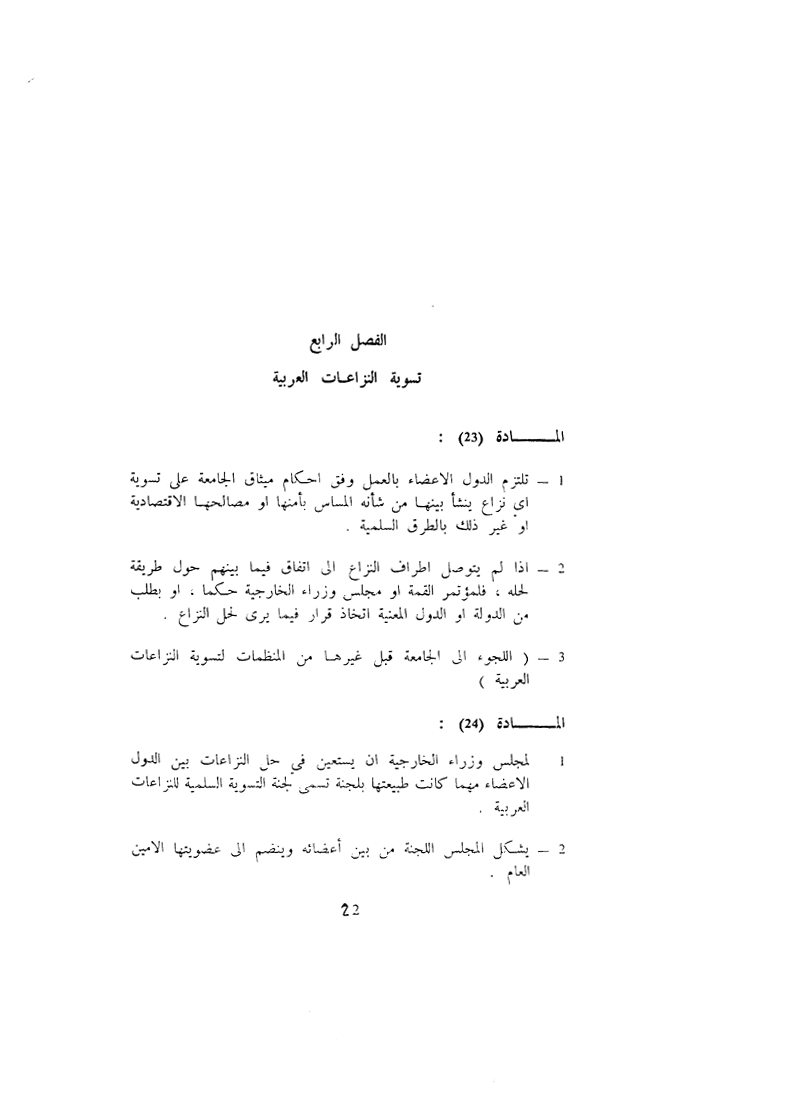 الفصل الرابع
تسوية النزاعـات العربية
المــــــــادة (23) :
1 — تلتزم الدول الاعضاء بالعمل وفق احكـام ميثاق الجامعة على تسوية
اى نزاع ينشأ بينهـا من شأنه المساس بأمنها او مصالحهـا الاقتصادية
او غير ذلك بالطرق السلمية .
2 — اذا لم يتوصل اطراف النزاع الى اتفاق فيما بينهم حول طريقة
لحله ، فلمؤتمر القمة او مجلس وزراء الخارجية حـكما ، او بطلب
من الدولة او الدول المعنية اتخاذ قرار فيما يرى لحل النزاع .
3 — ( اللجوء الى الجامعة قبل غيرهـا من المنظمات لتسوية النزاعات
العربية )
المــــــــادة (24) :
1 لمجلس وزراء الخارجية ان يستعين في حل النزاعات بين الدول
الاعضاء مهما كانت طبيعتها بلجنة تسمى لجنة التسوية السلمية للنزاعات
العربية .
2 — يشـكل المجلس اللجنة من بين أعضائه وينضم الى عضويتها الامين
العام .
22